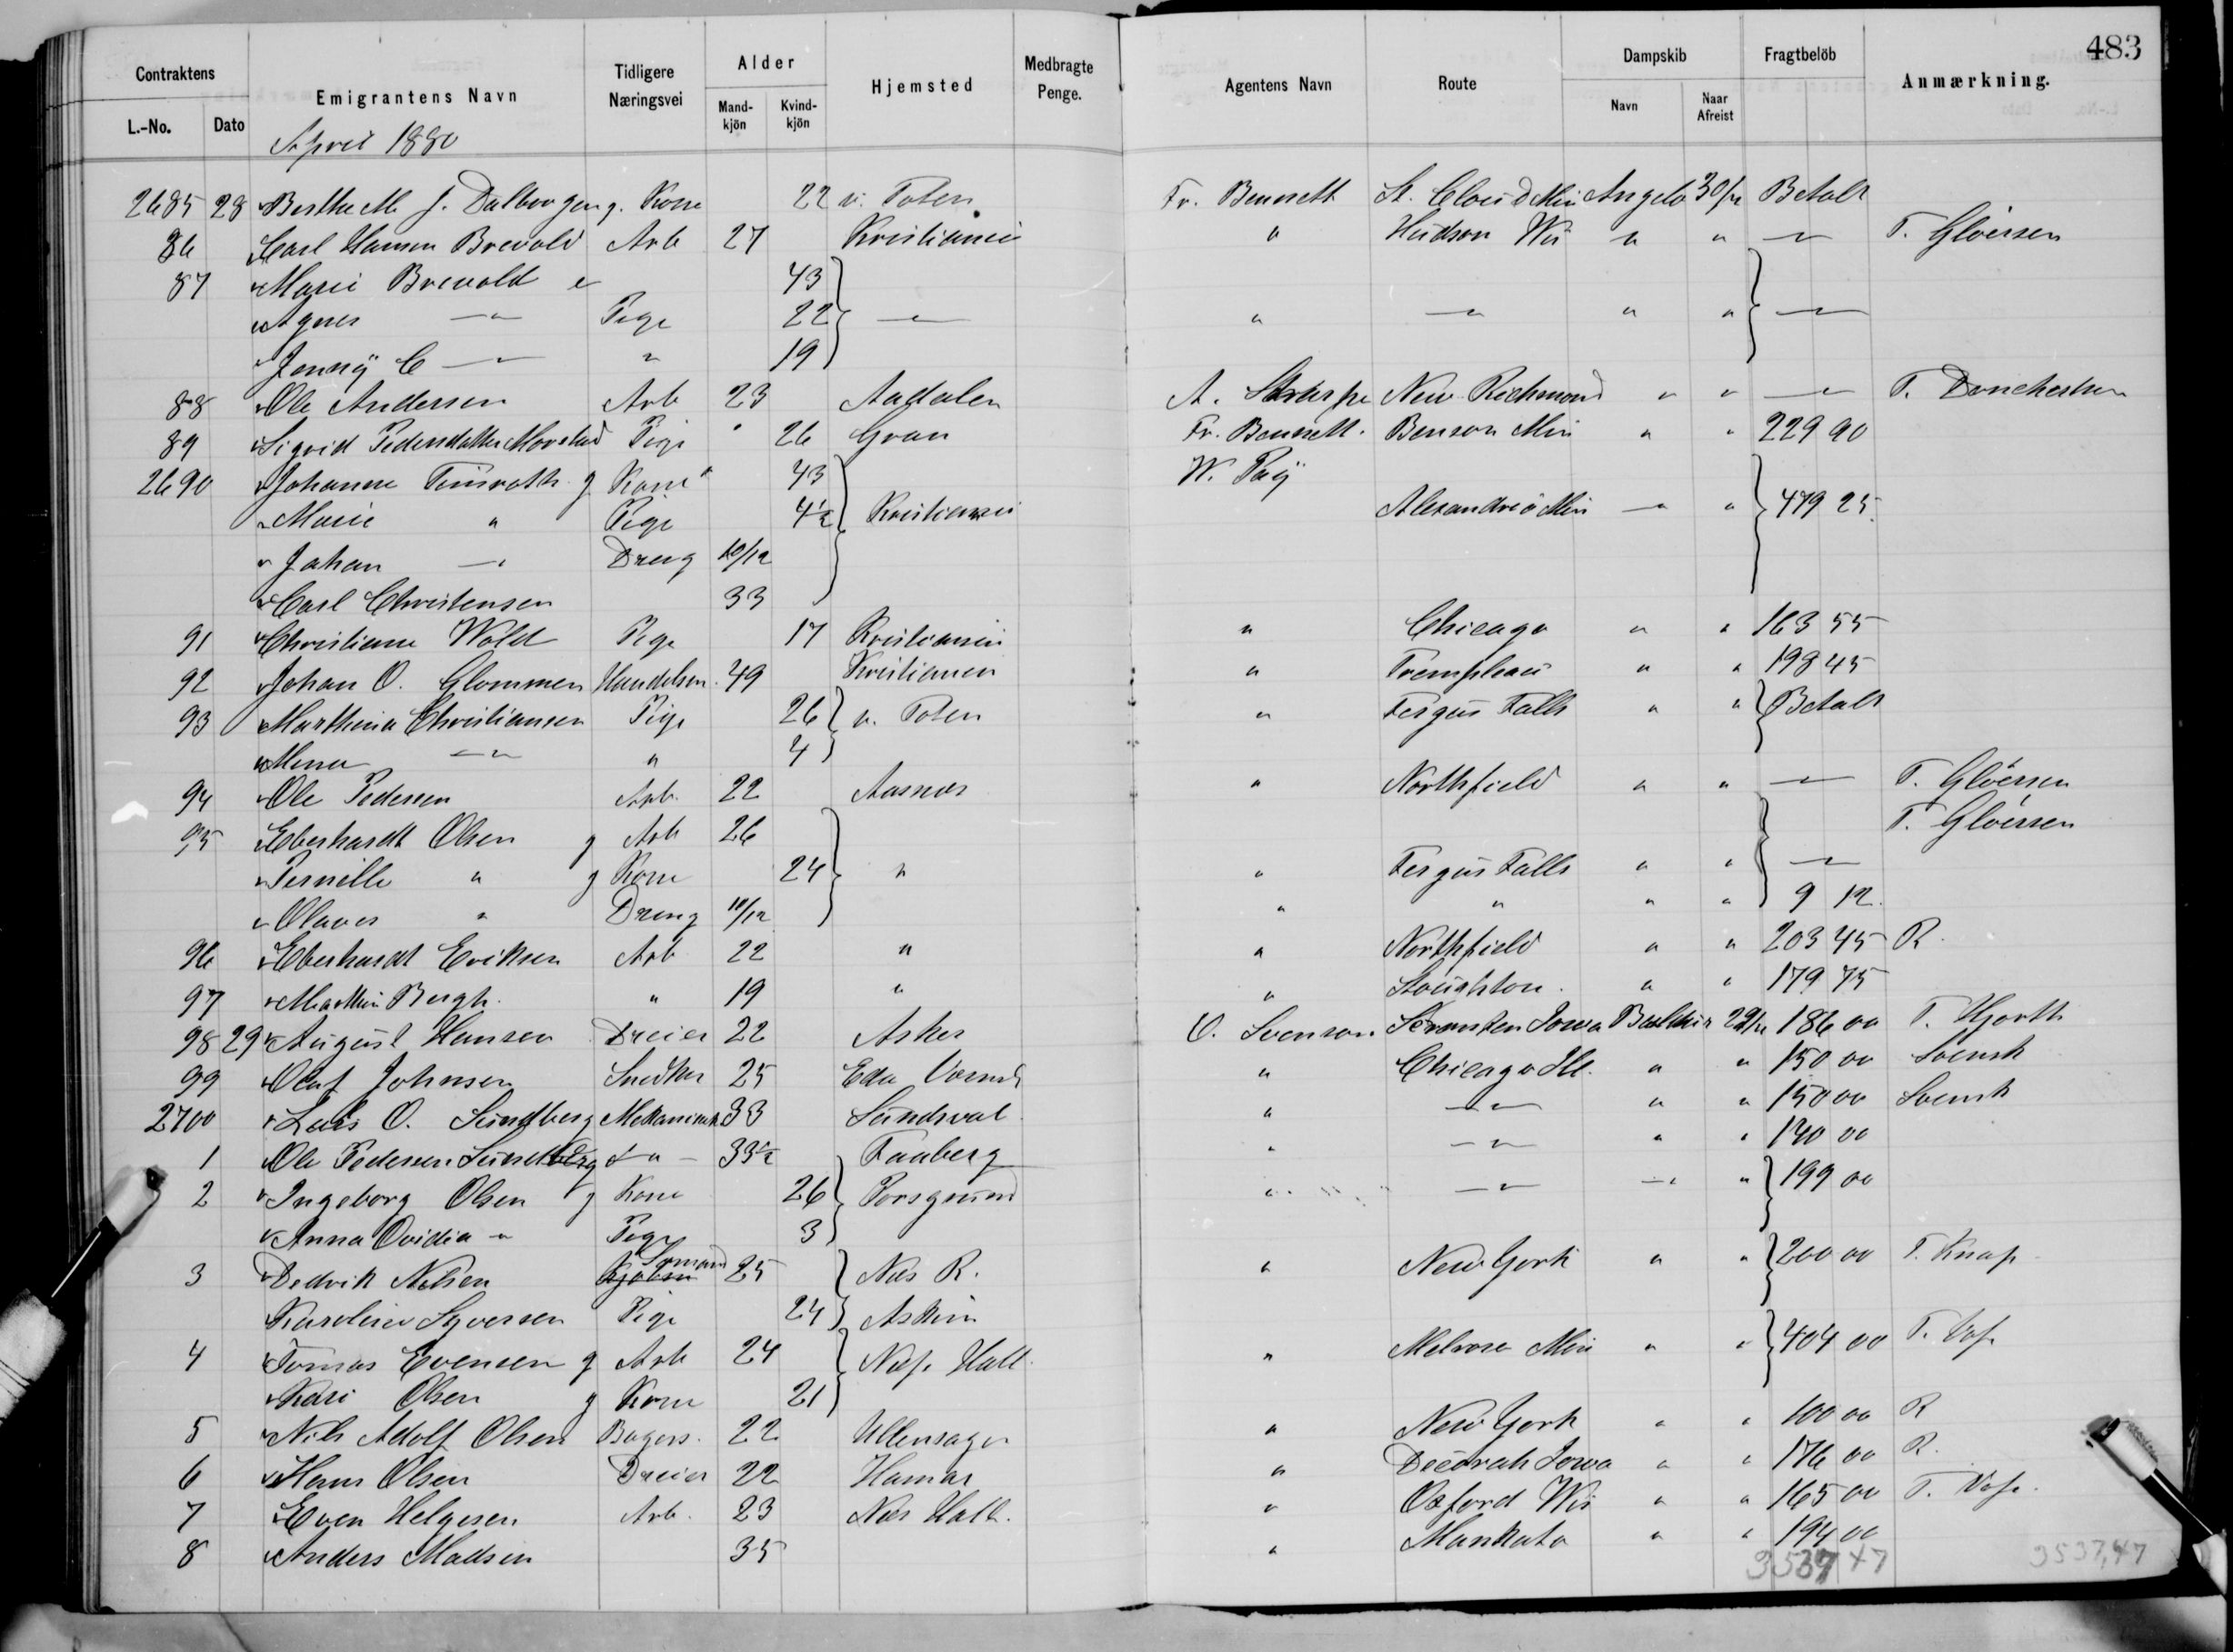 483
Contraktens Emigrantens Navn Tidligere Næringsvei Alder Hjemsted Medbragte Penge. Agentens Navn Route Dampskib Fragtbelöb Anmærkning.
L.-No. Dato Mand-kjön Kvind-kjön Navn Naar Afreist
April 1880
2685 28 Berthe M J. Dalborgen g. Kone 22 v. Toten Fr. Bennett St. Cloud Min Angelo 30/4 Betalt
86 Carl Hansen Brevold Arb 27 Kristiania " Hudson Wis " " — T. Gløersen
87 Marie Brevold e 43
Agnes —"— Pige 22 —"— " —"— " " —"—
Jenny C —"— " 19
88 Ole Andersen Arb 23 Aadalen A. Sharpe New Richmond " " —"—
89 Sigrid Pedersdatter Pige " 26 Gran Fr. Bennett. Benson Min " " 229 90
2690 Johanne g Kone 43 W. Paÿ
Marie " Pige 4½ Kristiania Alexandria Min —"— " 479 25
Johan —"— Dreng 10/12
Carl Christensen 33
91 Christiane Wold Pige 17 Kristiania " Chicago " " 163 55
92 Johan O. Glommen Handelsm. 49 Kristiania " Trempleau " " 198 45
93 Marthina Christiansen Pige 26 v. Toten " Fergus Falls " " Betalt
—"— " 4
94 Ole Pedersen Arb. 22 Aasnes " Northfield " " —"— T. Gløersen
95 Eberhardt Olsen g Arb 26 T. Gløersen
Pernille " g Kone 24 " " Fergus Falls " " —"—
Olaves " Dreng 11/12 " " " " 9 12
96 Eberhardt Eriksen Arb 22 " " Northfield " " 203 45 R
97 Marthin Bergh. " 19 " " Stoughton. " " 179 75
98 29 August Hansen Dreier 22 Asker O. Svenson Iowa 29/4 186 00 T. Hjorth
99 Olaf Johnsen Snedker 25 Eda " Chicago Ill. " " 150 00 Svensk
2700 Lars O. Sundberg Mekaniker 33 Sundsval " —"— " " 150 00 Svensk
1 Ole Pedersen Sundberg —"— 33½ Faaberg " —"— " " 140 00
2 Ingeborg Olsen g Kone 26 Porsgrund " —"— —"— " 199 00
Anna Ovidia —"— Pige 3
3 Dedrik Nilsen Sømand 25 Næs R. " New York " " 200 00 T. Knap
Karoline Syversen Pige 24 Askim
4 Tomas Evensen g Arb 24 Næs Hall. " Melrose Min " " 404 00
Kari Olsen g Kone 21
5 Nils Adolf Olsen Bagers. 22 Ullensager " New York " " 100 00 R
6 Hans Olsen Dreier 22 Hamar " Decorah Iowa " " 176 00 R.
7 Even Helgesen Arb. 23 Næs Hall. " Oxford Wis " " 165 00
8 Anders Madsen 35 " Mankato " " 194 00
3537 47 3537,47